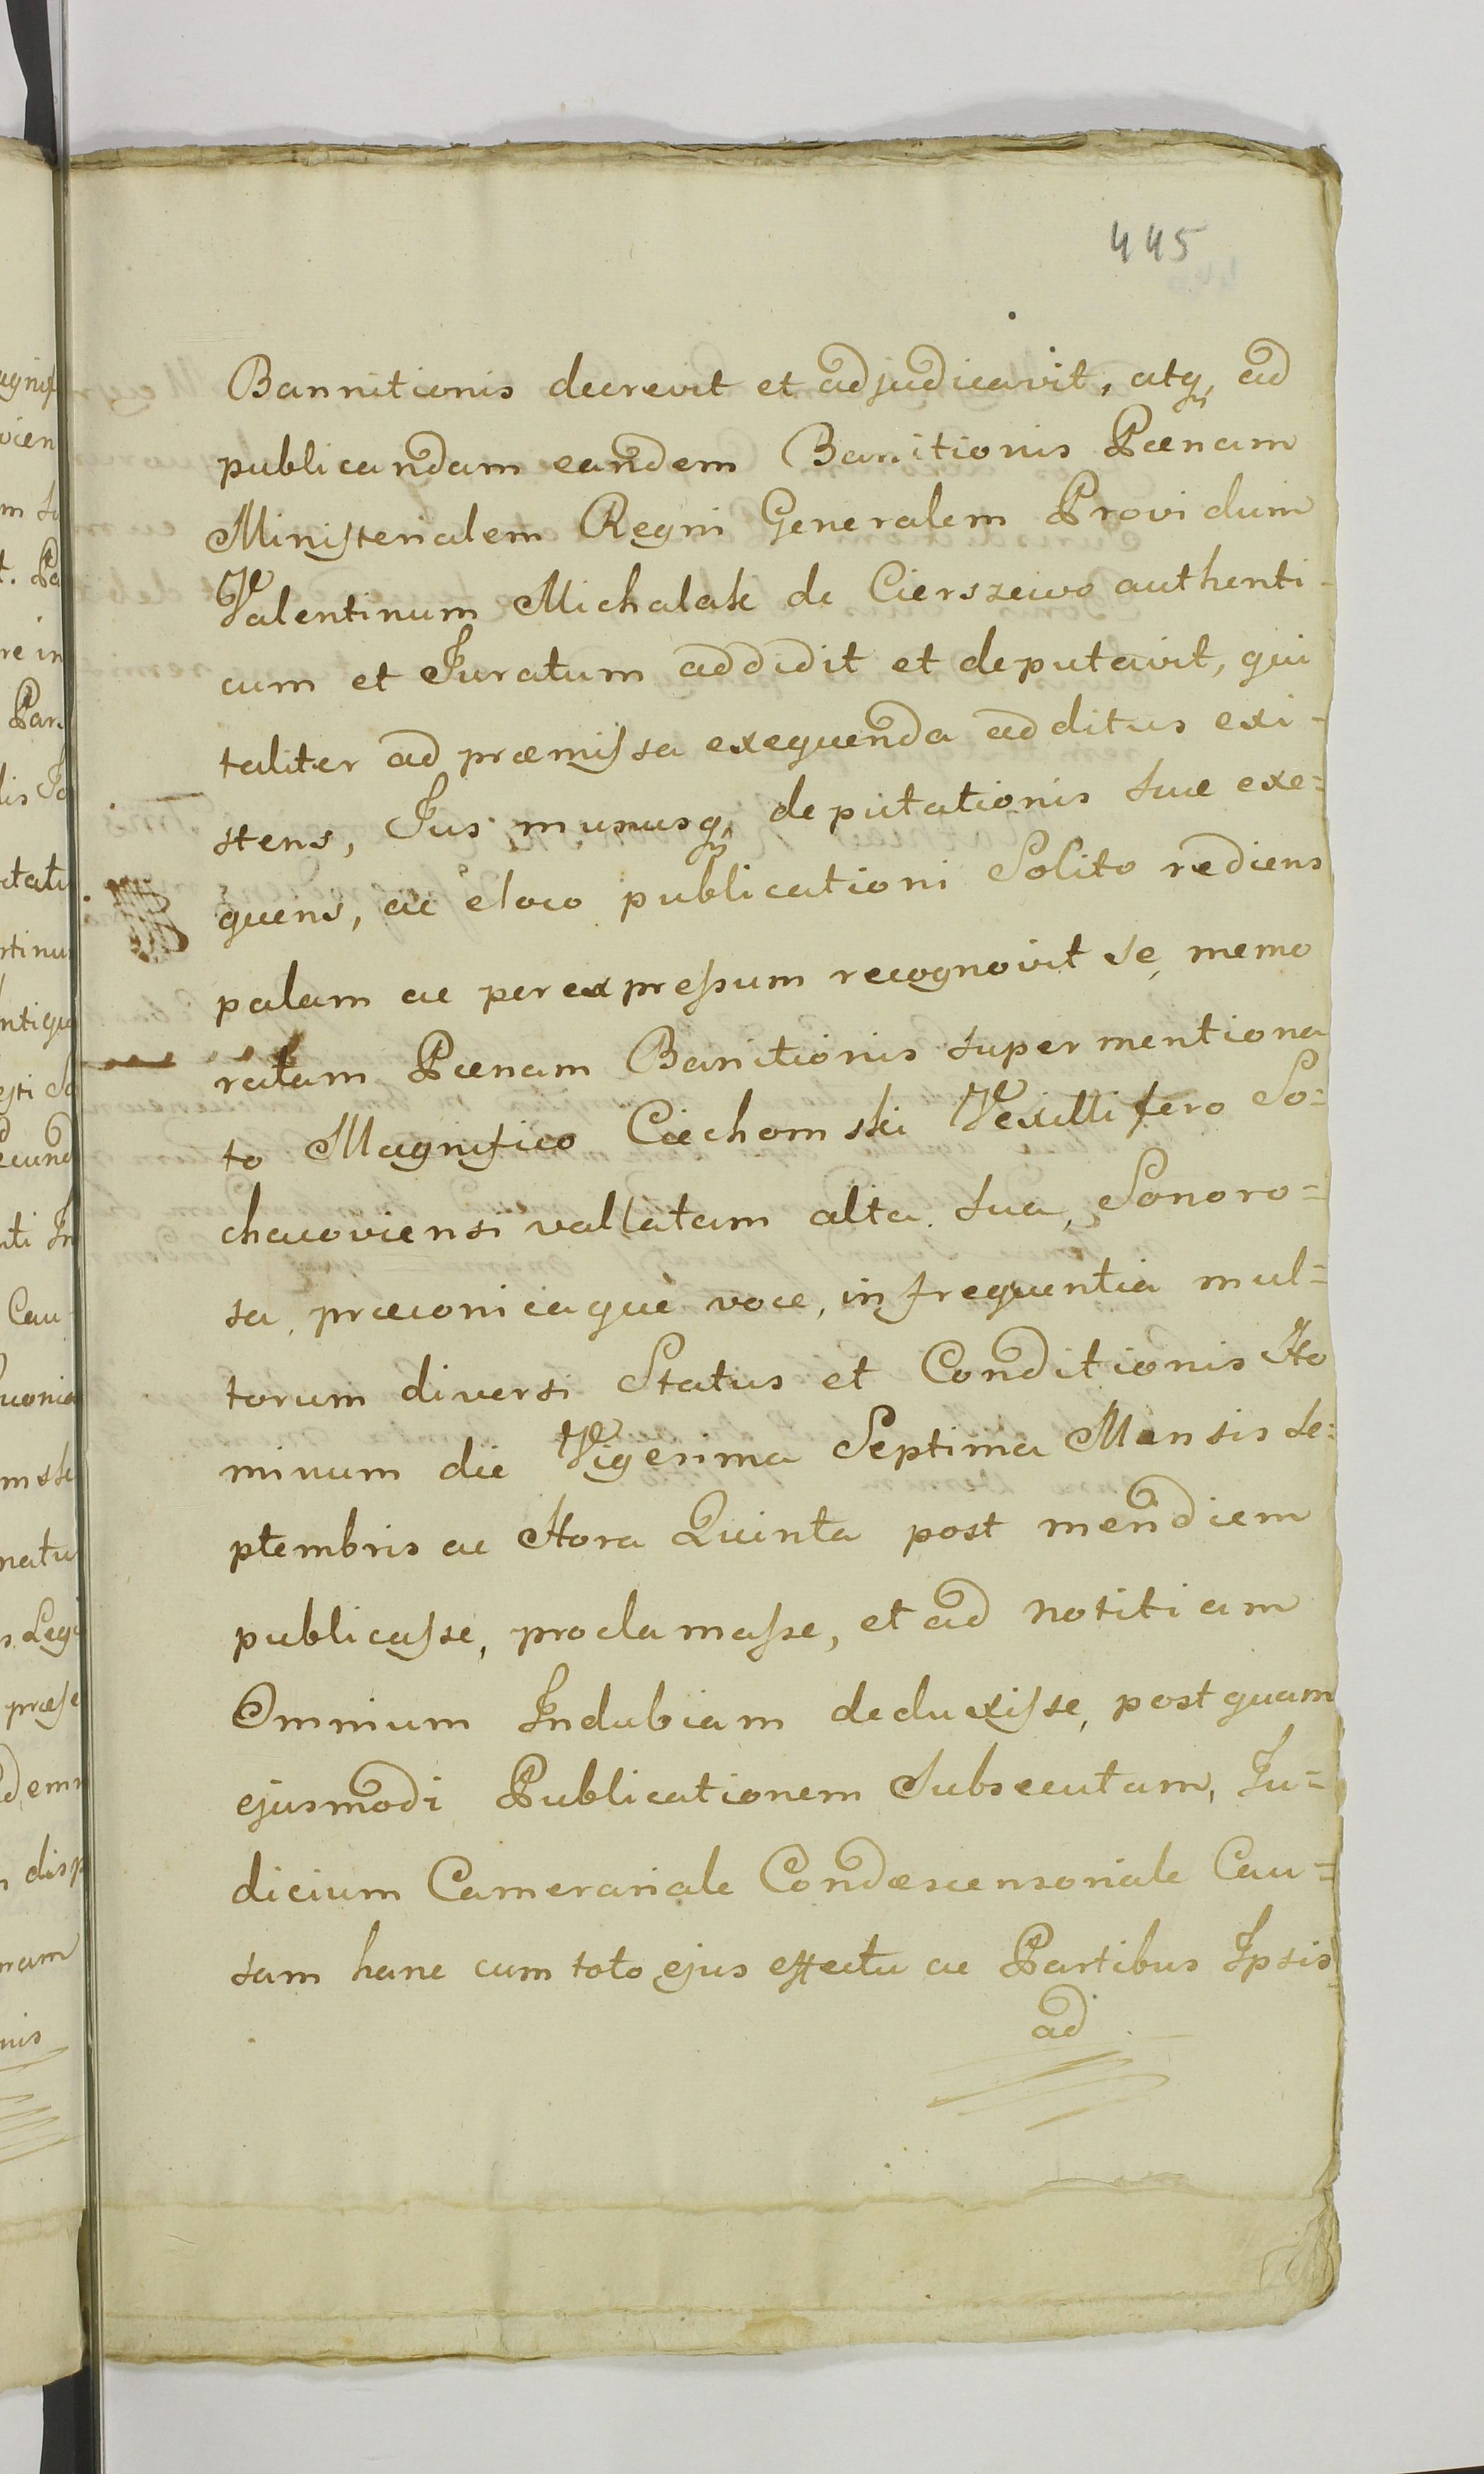 445
Bannitionis decrevit et adjudicavit, atq, ad
publicandam eandem Banitionis Pœnam
Ministerialem Regni Generalem Providum
Valentinum Michalak de Cierszewo authenti-
cum et Juratum addidit et deputavit, qui
taliter ad præmissa exequenda additus exi-
stens, Jus munusq, deputationis suæ exe=
quens, ac eloco publicationi Solito rediens
palam ac perexpressum recognovit se, memo
ratam Pœnam Banitionis super mentiona
to Magnifico Ciechomski Vexillifero So=
chacoviensi vallatam alta, sua, Sonoro=
sa, præconicaquè voce, in frequentia mul=
torum diversi Status et Conditionis Ho
minum die Vigesima Septima Mensis Se=
ptembris ac Hora Quinta post meridiem
publicasse, proclamasse, et ad notitiam
Omnium Indubiam deduxisse, postquam
ejusmodi Publicationem Subsecutam, Ju=
dicium Camerariale Condescensoriale Cau=
sam hanc cum toto ejus effectu ac Partibus Ipsis
ad